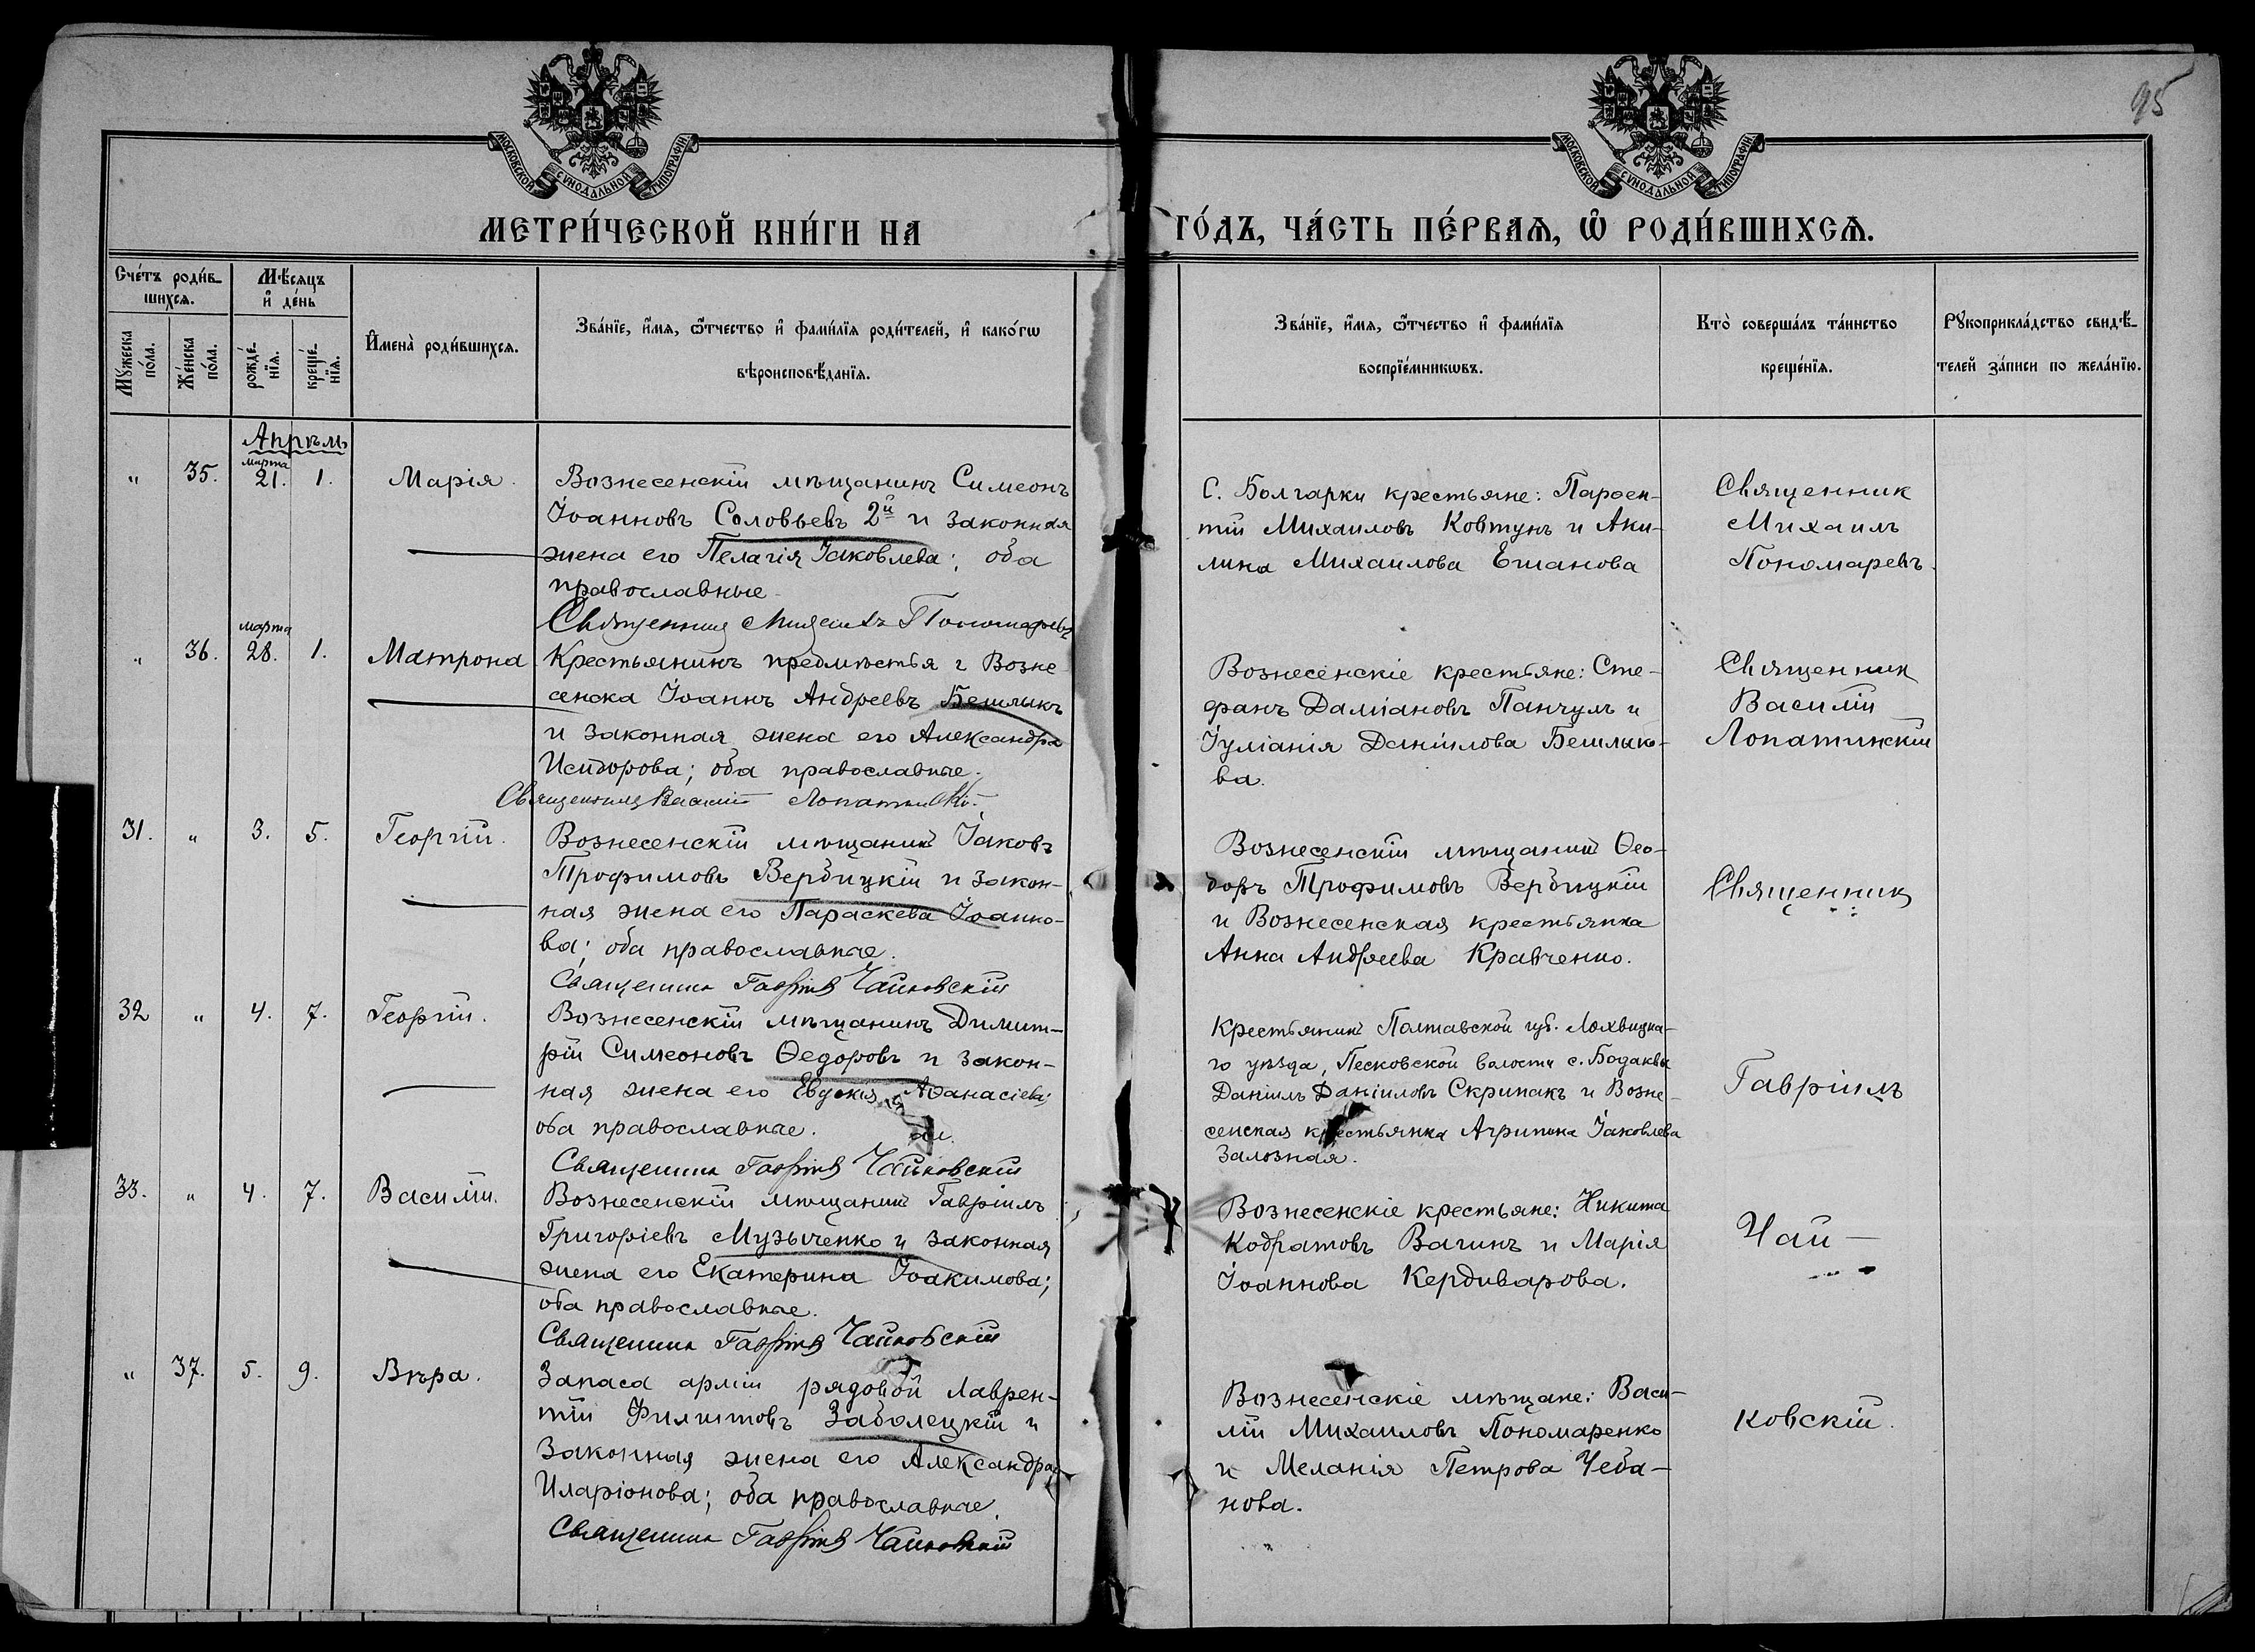 95
МОСКОВСКОЙ СѴНОДАЛЬНОЙ ТИПОГРАФІИ
МОСКОВСКОЙ СѴНОДАЛЬНОЙ ТИПОГРАФІИ
МЕТРИ́ЧЕСКОЙ КНИ́ГИ НА ГО́ДЪ, ЧА́СТЬ ПЕ́РВАѦ, Ѡ҆ РОДИ́ВШИХСѦ.
Сче́тъ роди́в-
шихсѧ.
Мѣ́сѧцъ
и҆ де́нь
Мꙋ́жеска
по́ла.
Же́нска
по́ла.
рожде́-
нїѧ.
креще́-
нїѧ.
И҆мена̀ роди́вшихсѧ.
Зва́нїе, и҆́мѧ, ѻ҆́тчество и҆ фами́лїѧ роди́телей, и҆ како́гѡ
вѣроисповѣ́данїѧ.
Зва́нїе, и҆́мѧ, ѻ҆́тчество и҆ фами́лїѧ
воспрїе́мникѡвъ.
Кто̀ соверша́лъ та́инство
креще́нїѧ.
Рꙋкоприкла́дство свидѣ́-
телей за́писи по жела́нїю.
Апрѣль
марта
" 35. 21. 1. Марія.
Вознесенскій мѣщанинъ Симеонъ
Іоанновъ Соловьевъ 2й и законная
жена его Пелагія Іаковлева; оба
православные.
Священникъ Михаилъ Пономаревъ
С. Болгарки крестьяне: Парѳен-
тій Михаиловъ Ковтунъ и Аки-
лина Михаилова Ешанова
Священник
Михаилъ
Пономаревъ.
марта
" 36. 28. 1. Матрона
Крестьянинъ предмѣстья г Возне
сенска Іоаннъ Андреевъ Бешлыкъ
и законная жена его Александра
Исидорова; оба православные.
Священникъ Василій Лопатинскій.
Вознесенскіе крестьяне: Сте-
фанъ Даміановъ Панчулъ и
Іуліанія Даніилова Бешлыко-
ва.
Священник
Василій
Лопатинскій
31. " 3. 5. Георгій.
Вознесенскій мѣщанинъ Іаковъ
Трофимовъ Вербицкій и закон-
ная жена его Параскева Іоанно-
ва; оба православные.
Священникъ Гавріилъ Чайковскій
Вознесенскій мѣщанинъ Ѳео-
доръ Трофимовъ Вербицкій
и Вознесенская крестьянка
Анна Андреева Кравченко.
Священник
32 " 4. 7. Георгій.
Вознесенскій мѣщанинъ Димит-
рій Симеоновъ Ѳедоровъ и закон-
ная жена его Евдокія Аѳанасіева;
оба православные.
Священникъ Гавріилъ Чайковскій
Крестьянинъ Полтавской губ. Лохвицка-
го уѣзда, Песковской волости с. Бодаквы
Даніилъ Даніиловъ Скрипакъ и Возне-
сенская крестьянка Агрипина Іаковлева
Залозная.
Гавріилъ
33. " 4. 7. Василій.
Вознесенскій мѣщанинъ Гавріилъ
Григоріевъ Музыченко и законная
жена его Екатерина Іоакимова;
оба православные.
Священникъ Гавріилъ Чайковскій
Вознесенскіе крестьяне: Никита
Кодратовъ Вагинъ и Марія
Іоаннова Кердиварова.
Чай-
" 37. 5. 9. Вѣра.
Запаса арміи рядовой Лаврен-
тій Филиповъ Заболецкій и
законная жена его Александра
Иларіонова; оба православные.
Священникъ Гавріилъ Чайковскій
Вознесенскіе мѣщане: Васи-
лій Михаиловъ Пономаренко
и Меланія Петрова Чеба-
нова.
ковскій.